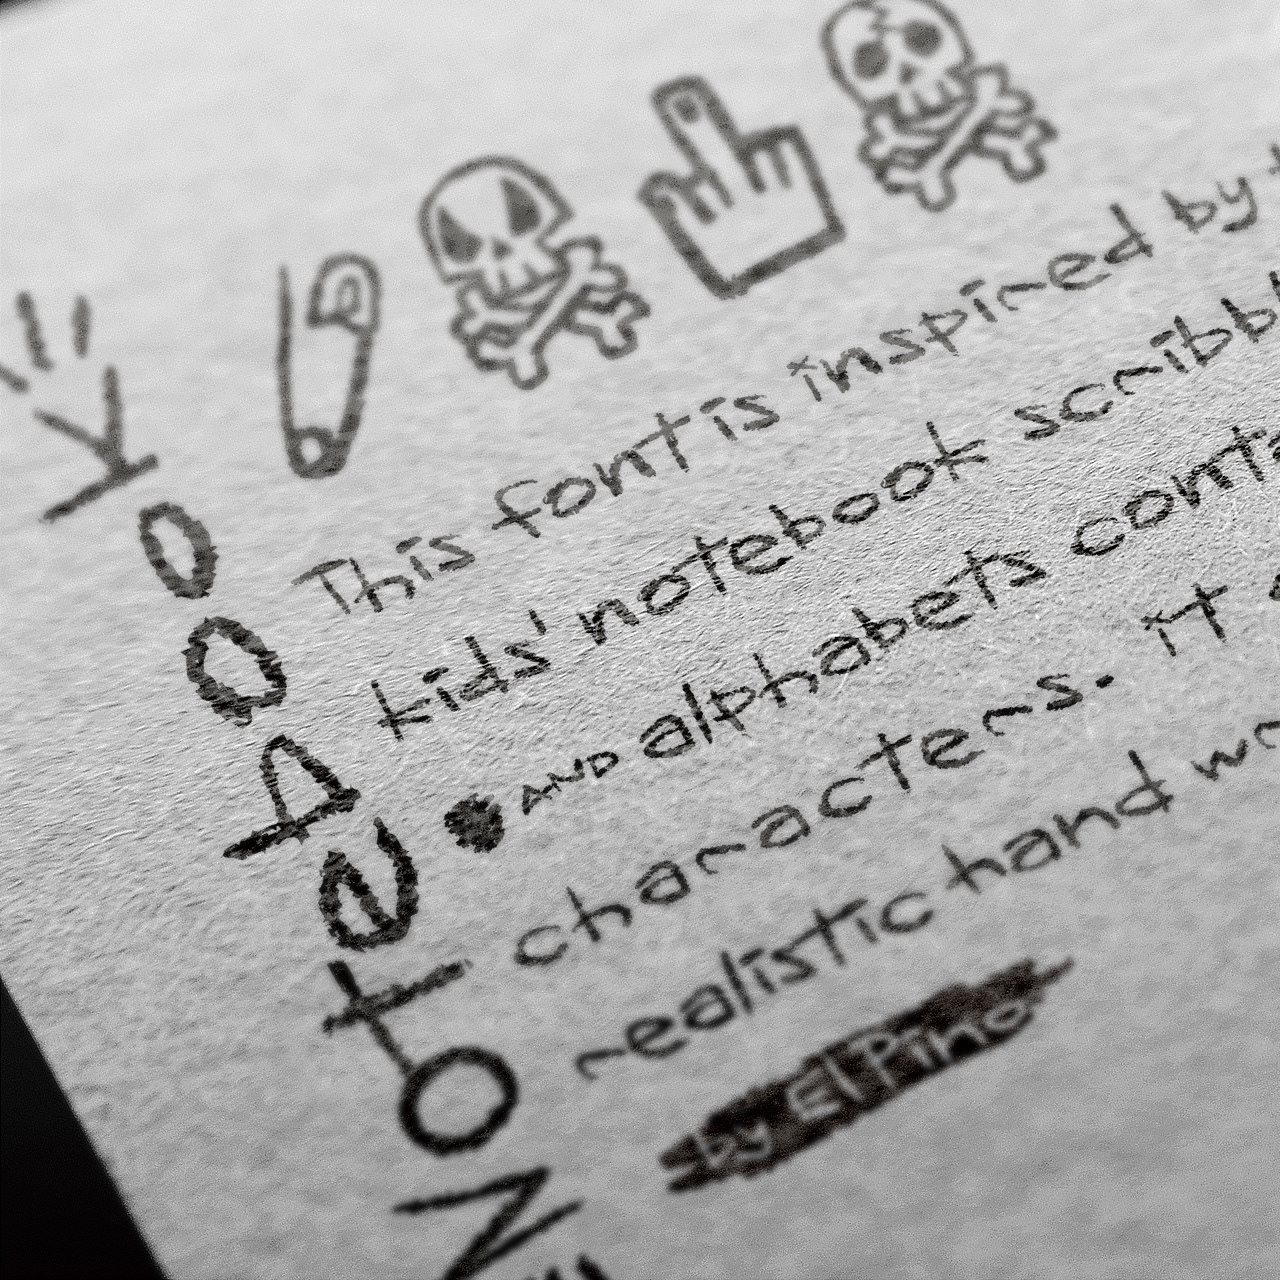 "Notebook"
This font is inspired by
kids' notebook scribb
AND alphabets conta
characters. it
realistic hand wr
by El Pino